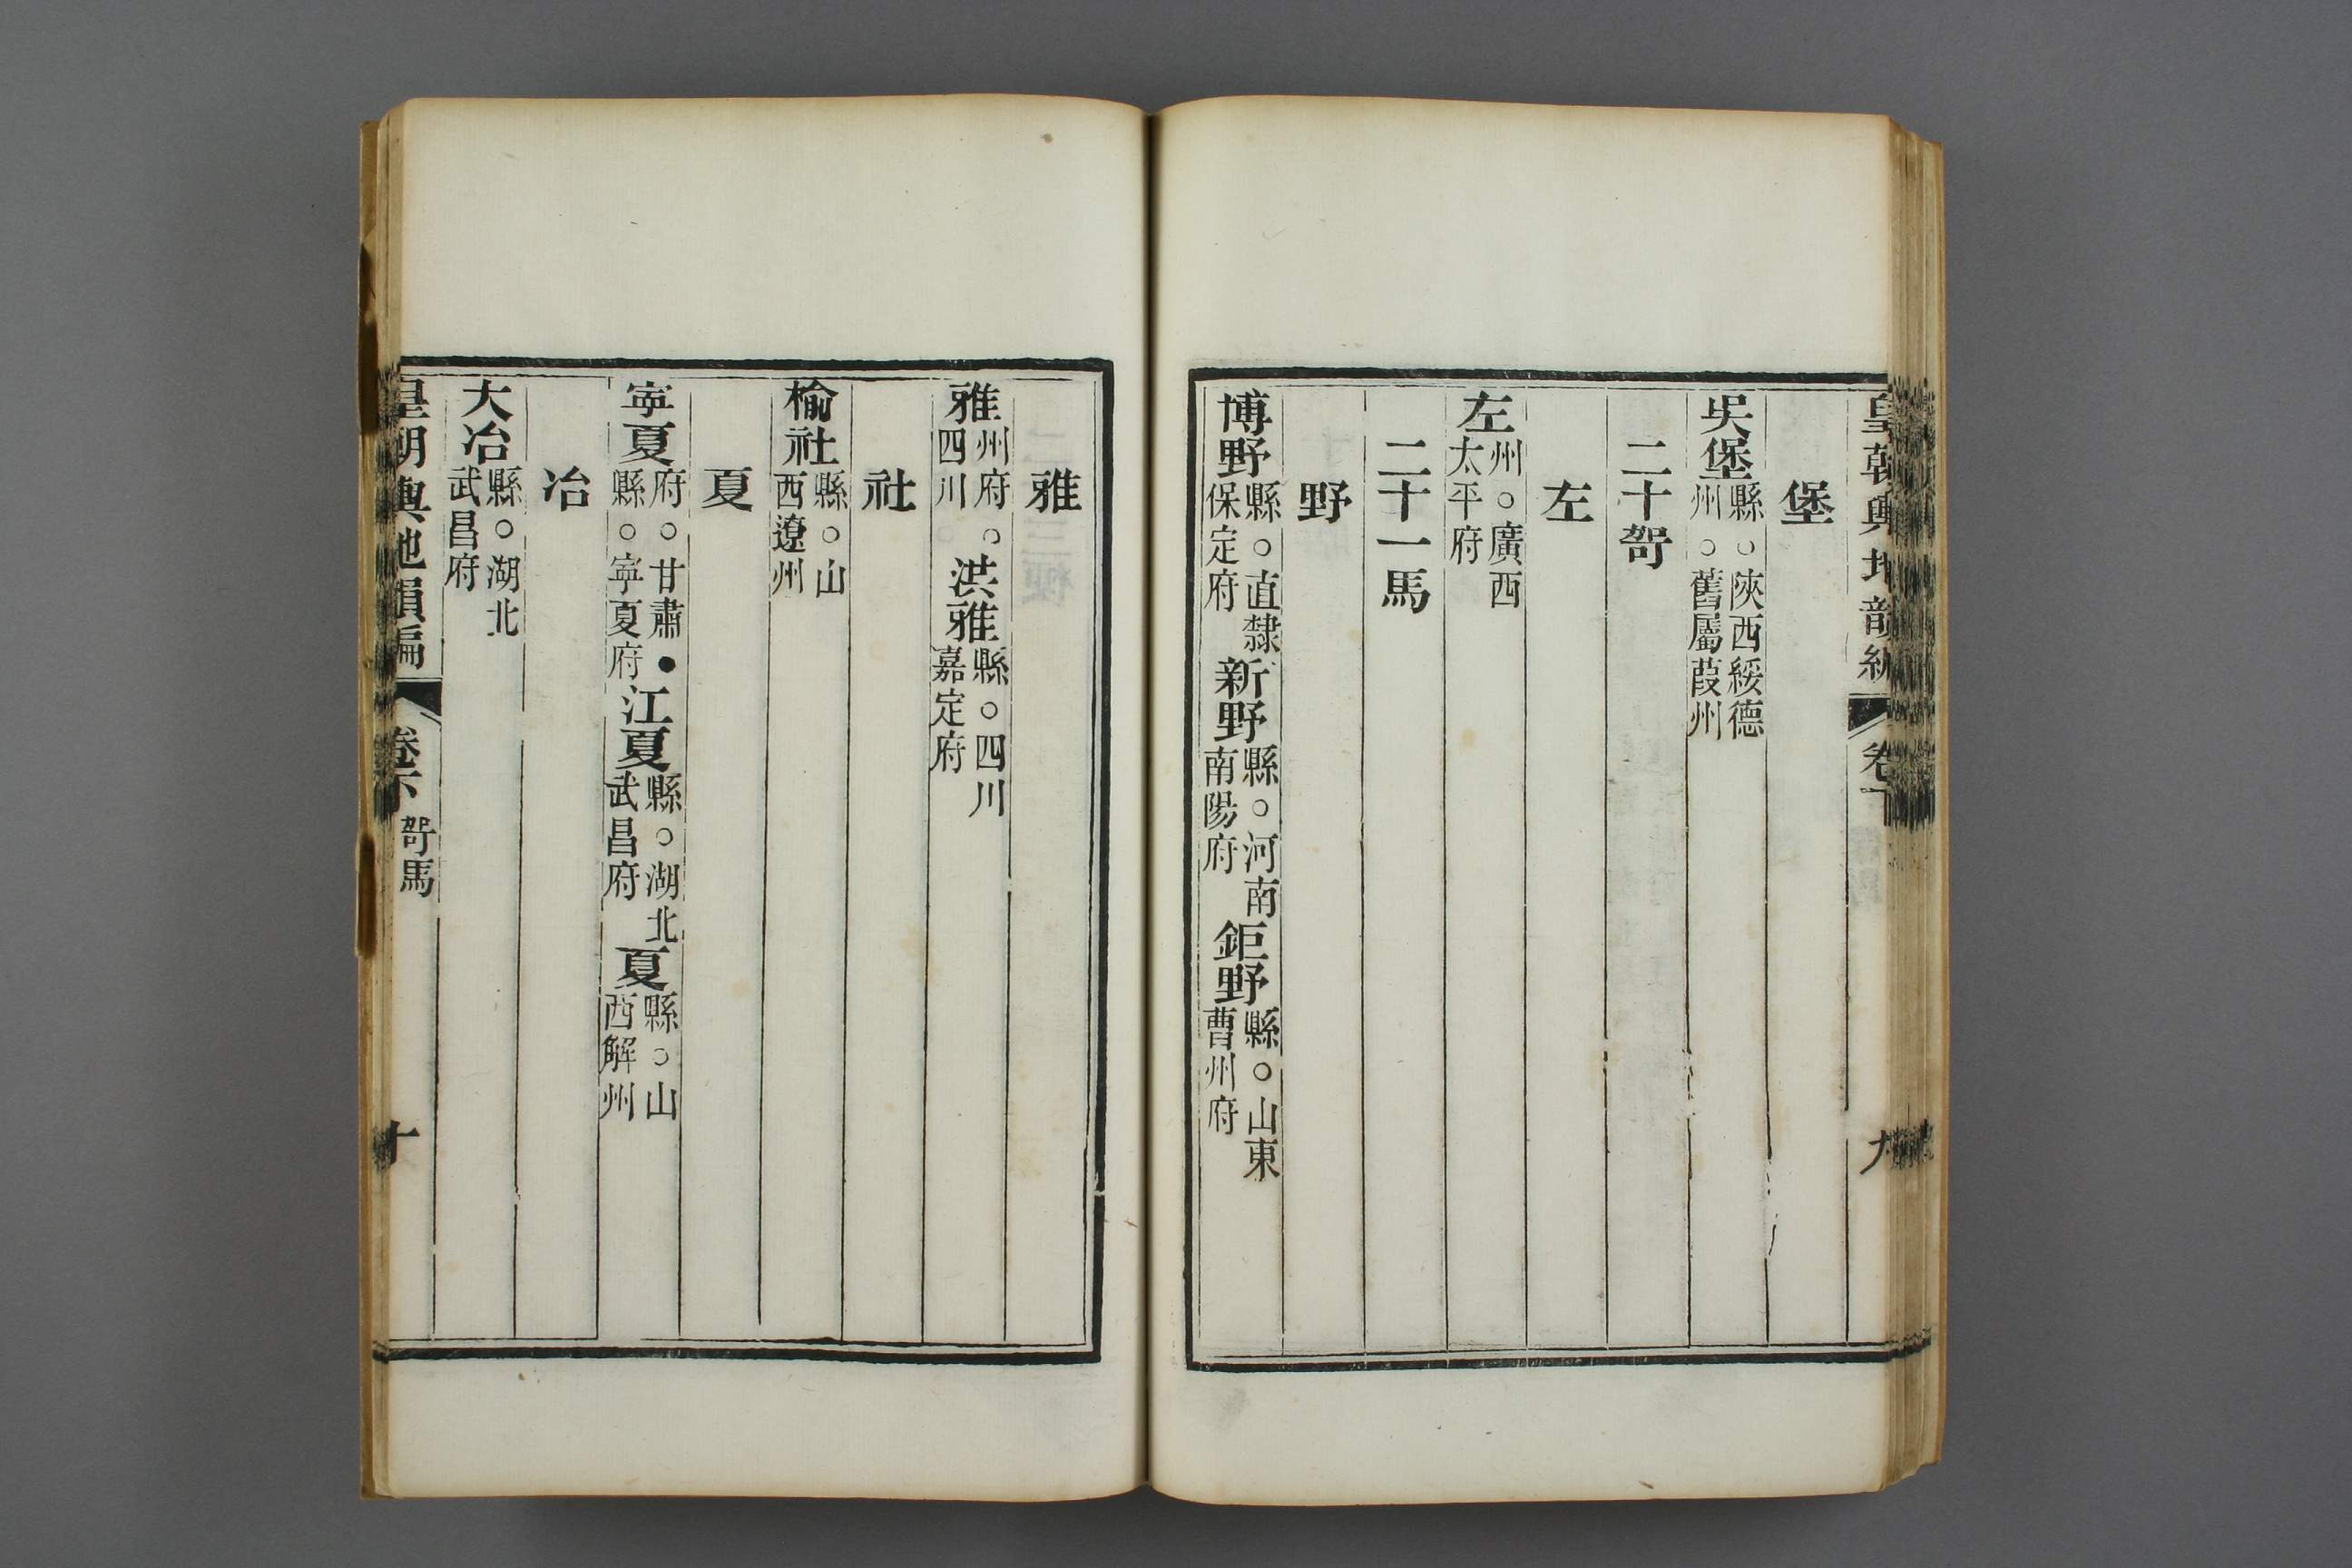 皇朝輿地韻編 卷下 九
堡
吳堡 縣○陝西綏德州○舊屬葭州
二十哿
左
左 州○廣西太平府
二十一馬
野
博野 縣○直隸保定府 新野 縣○河南南陽府 鉅野 縣○山東曹州府
雅
雅 州府○四川○ 洪雅 縣○四川嘉定府
社
榆社 縣○山西遼州
夏
寧夏 府○甘肅●縣○寧夏府 江夏 縣○湖北武昌府 夏 縣○山西解州
冶
大冶 縣○湖北武昌府
皇朝輿地韻編 卷下 哿馬 十